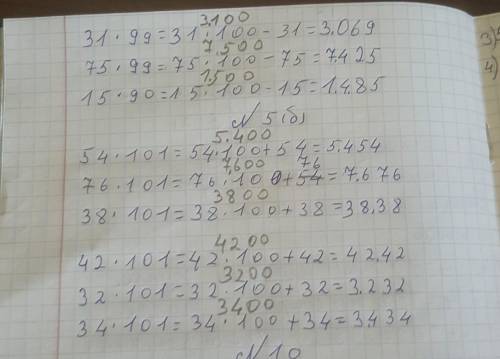 3.100
31·99=31·100-31=3.069
7.500
75·99=75·100-75=7.425
1.500
15·90=15·100-15=1.4.85
№5(б)
5.400
54·101=54·100+54=5.454
7.600 76
76·101=76·100+54=7.676
3800
38·101=38·100+38=38.38
4200
42·101=42·100+42=42.42
3200
32·101=32·100+32=3.232
3400
34·101=34·100+34=3434
№10
3)
4)